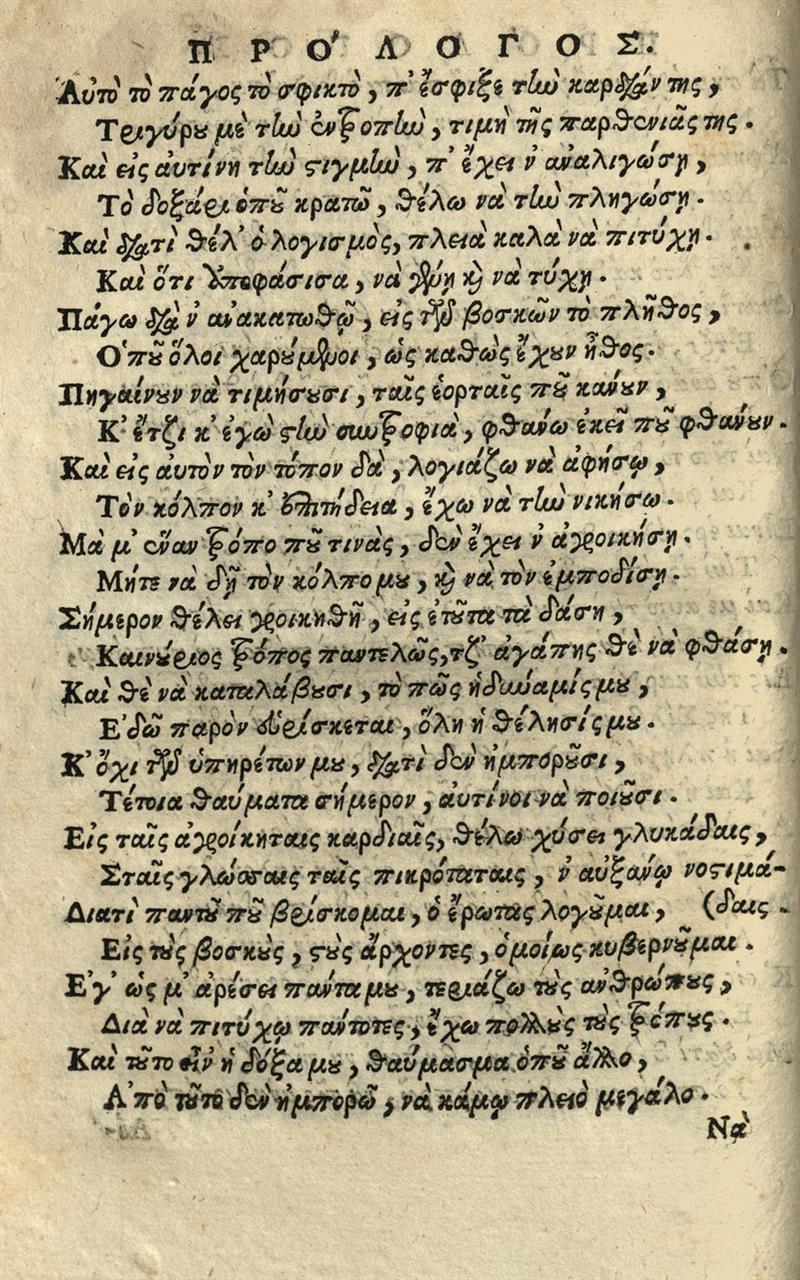 ΠΡΟ'ΛΟΓΟΣ.
Αὐτὸ τὸ πάγος τὸ σφικτὸ, π' ἔσφιξε τὴν καρδιάν της,
Τριγύρου μὲ τὴν ἐντροπὴν, τιμὴ τῆς παρθενιᾶς της.
Καὶ εἰς ἀυτίνη τὴν στιγμὴν, π' ἔχει ν' ἀναλιγώσῃ,
Τὸ δοξάρι ὁποῦ κρατῶ, θέλω νὰ τὴν πληγώσῃ.
Καὶ γιατὶ θέλ' ὁ λογισμὸς, πλειὰ καλὰ νὰ πιτύχῃ.
Καὶ ὅτι ὑπεφάσισα, νὰ γένῃ καὶ νὰ τύχῃ.
Πάγω γιὰ ν' ἀνακατωθῶ, εἰς τῶν βοσκῶν τὸ πλῆθος,
Ὁποῦ ὅλοι χαρούμενοι, ὡς καθὼς ἔχουν ἦθος.
Πηγαίνουν νὰ τιμήσουσι, ταῖς ἑορταῖς ποῦ κάνουν,
Κ' ἔτζι κ' ἐγὼ στὴν συντροφιὰ, φθάνω ἐκεῖ ποῦ φθάνουν.
Καὶ εἰς αὐτὸν τὸν τόπον δὰ, λογιάζω νὰ ἀφήσω,
Τὸν κόλπον κ' ἐπιτήδεια, ἔχω νὰ τὴν νικήσω.
Μὰ μ' ἕναν τρόπο ποῦ τινὰς, δὲν ἔχει ν' ἀγροικήσῃ.
Μήτε νὰ δῇ τὸν κόλπο μου, καὶ νὰ τὸν ἐμποδίσῃ.
Σήμερον θέλει γροικηθῆ, εἰς ἐτοῦτα τὰ δάση,
Καινούριος τρόπος παντελῶς, τζ' ἀγάπης θὲ νὰ φθάσῃ.
Καὶ θὲ νὰ καταλάβουσι, τὸ πῶς ἡ δύναμίς μου,
Ἐδῶ παρὸν εὑρίσκεται, ὅλη ἡ θέλησίς μου.
Κ' ὄχι τῶν ὑπηρέτων μου, γιατὶ δὲν ἠμποροῦσι,
Τέτοια θαύματα σήμερον, ἀυτίνοι νὰ ποιοῦσι.
Εἰς ταῖς ἀγροίκηταις καρδιαῖς, θέλω χύσει γλυκάδαις,
Σταῖς γλώσσαις ταῖς πικρόταταις, ν' αὐξάνῳ νοστιμά-
Διατὶ παντοῦ ποῦ βρίσκομαι, ὁ ἔρωτας λογοῦμαι, (δαις.
Εἰς τοὺς βοσκοὺς, στοὺς ἄρχοντες, ὁμοίως κυβερνοῦμαι.
Ἐγ' ὡς μ' ἀρέσει πάντα μου, τεριάζω τοὺς ἀνθρώπους,
Διὰ νὰ πιτύχῳ πάντοτες, ἔχω πολλοὺς τοὺς τρόπους.
Καὶ τοῦτο εἶν ἡ δόξα μου, θαύμασμα ὁποῦ ἄλλο,
Ἀπὸ τοῦτο δὲν ἠμπορῶ, νὰ κάμῳ πλειὸ μεγάλο.
Νὰ